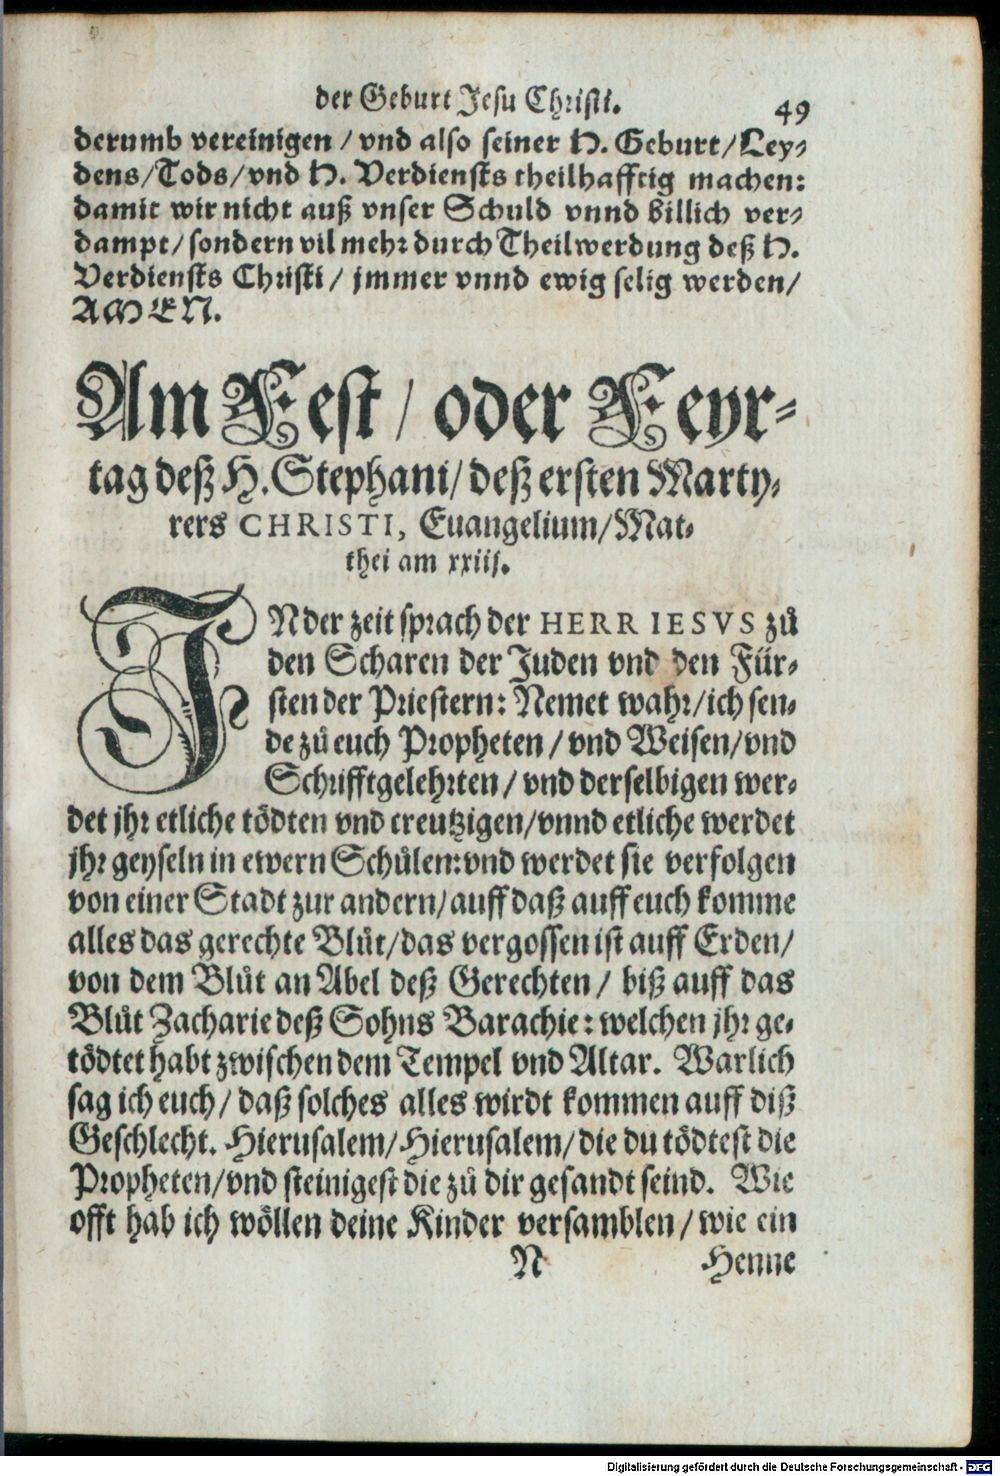 der Geburt Jesu Christi. 49
derumb vereinigen / vnd also seiner H. Geburt / Ley-
dens / Tods / vnd H. Verdiensts theilhafftig machen:
damit wir nicht auß vnser Schuld vnnd billich ver-
dampt / sondern vil mehr durch Theilwerdung deß H.
Verdiensts Christi / jmmer vnnd ewig selig werden /
AMEN.
Am Fest / oder Feyr-
tag deß H. Stephani / deß ersten Marty-
rers CHRISTI, Euangelium / Mat-
thei am xxiij.
IN der zeit sprach der HERR IESVS zů
den Scharen der Juden vnd den Für-
sten der Priestern: Nemet wahr / ich sen-
de zů euch Propheten / vnd Weisen / vnd
Schrifftgelehrten / vnd derselbigen wer-
det jhr etliche tödten vnd creutzigen / vnnd etliche werdet
jhr geyseln in ewern Schůlen: vnd werdet sie verfolgen
von einer Stadt zur andern / auff daß auff euch komme
alles das gerechte Blůt / das vergossen ist auff Erden /
von dem Blůt an Abel deß Gerechten / biß auff das
Blůt Zacharie deß Sohns Barachie: welchen jhr ge-
tödtet habt zwischen dem Tempel vnd Altar. Warlich
sag ich euch / daß solches alles wirdt kommen auff diß
Geschlecht. Hierusalem / Hierusalem / die du tödtest die
Propheten / vnd steinigest die zů dir gesandt seind. Wie
offt hab ich wöllen deine Kinder versamblen / wie ein
N Henne
Digitalisierung gefördert durch die Deutsche Forschungsgemeinschaft - DFG